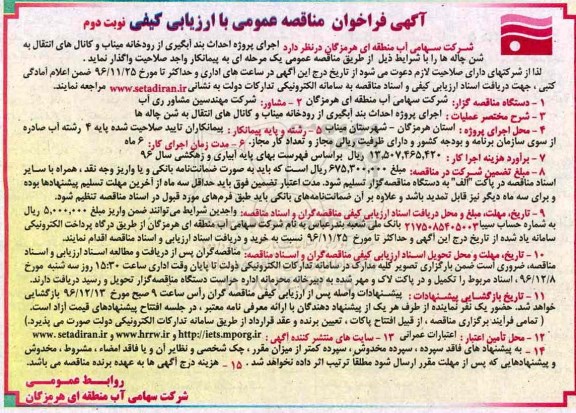 آگهی فراخوان مناقصه عمومی با ارزیابی کیفی نوبت دوم
شرکت سهامی آب منطقه ای هرمزگان درنظر دارد اجرای پروژه احداث بند آبگیری از رودخانه میناب و کانال های انتقال به
شن چاله ها را با شرایط ذیل از طریق مناقصه عمومی یک مرحله ای به پیمانکار واجد صلاحیت واگذار نماید .
لذا از شرکتهای دارای صلاحیت لازم دعوت می شود از تاریخ درج این آگهی در ساعت های اداری و حداکثر تا مورخ ۹۶/۱۱/۲۵ ضمن اعلام آمادگی
کتبی ، جهت دریافت اسناد ارزیابی کیفی و اسناد مناقصه به سامانه الکترونیکی تدارکات دولت به نشانی www.setadiran.ir مراجعه نمایند.
۱ - دستگاه مناقصه گزار: شرکت سهامی آب منطقه ای هرمزگان ۲ - مشاور: شرکت مهندسین مشاور ری آب
۳ - شرح مختصر عملیات : اجرای پروژه احداث بند آبگیری از رودخانه میناب و کانال های انتقال به شن چاله ها
۴ - محل اجرای پروژه : استان هرمزگان - شهرستان میناب ۵ - رشته و پایه پیمانکار : پیمانکاران تایید صلاحیت شده پایه ۴ رشته آب صادره
از سوی سازمان برنامه و بودجه کشور و دارای ظرفیت ریالی مجاز و تعداد کار مجاز. ۶ - مدت زمان اجرای کار: ۶ ماه
۷ - برآورد هزینه اجرا کار : ۱۳,۵۰۷,۴۶۵,۴۲۰ ریال براساس فهرست بهای پایه آبیاری و زهکشی سال ۹۶
۸ - مبلغ تضمین شرکت در مناقصه: مبلغ ۶۷۵,۳۰۰,۰۰۰ ریال است که باید به صورت ضمانت‌نامه بانکی و یا واریز وجه نقد ، همراه با سایر
اسناد مناقصه در پاکت "الف" به دستگاه مناقصه‌گزار تسلیم شود. مدت اعتبار تضمین فوق باید حداقل سه ماه از آخرین مهلت تسلیم پیشنهادها بوده
و برای سه ماه دیگر نیز قابل تمدید باشد و علاوه بر آن ضمانت‌نامه‌های بانکی باید طبق فرم‌های مورد قبول در اسناد مناقصه تنظیم شود.
۹ - تاریخ، مهلت، مبلغ و محل دریافت اسناد ارزیابی کیفی مناقصه‌گران و اسناد مناقصه: واجدین شرایط می‌توانند ضمن واریز مبلغ ۵,۰۰۰,۰۰۰ ریال
به شماره حساب سیبا ۲۱۷۵۰۸۵۴۰۵۰۰۳ بانک ملی شعبه بندرعباس به نام شرکت سهامی آب منطقه ای هرمزگان از طریق درگاه پرداخت الکترونیکی
سامانه یاد شده از تاریخ درج این آگهی و حداکثر تا مورخ ۹۶/۱۱/۲۵ نسبت به خرید و دریافت اسناد ارزیابی و اسناد مناقصه اقدام نمایند.
۱۰ - تاریخ، مهلت و محل تحویل اسناد ارزیابی کیفی مناقصه‌گران و اسناد مناقصه: مناقصه‌گران پس از دریافت و مطالعه اسناد ارزیابی و اسناد
مناقصه، ضروری است ضمن بارگزاری تصویر کلیه مدارک در سامانه تدارکات الکترونیکی دولت تا پایان وقت اداری ساعت ۱۵:۳۰ روز سه شنبه مورخ
۹۶/۱۲/۸ ، اسناد مربوط را تکمیل و در پاکت لاک و مهر شده به دبیرخانه محرمانه اداره حراست دستگاه مناقصه‌گزار تحویل و رسید دریافت دارند.
۱۱ - تاریخ بازگشایی پیشنهادات : پیشنهادات واصله پس از ارزیابی کیفی مناقصه گران رأس ساعت ۹ صبح مورخ ۹۶/۱۲/۱۳ بازگشایی
خواهد شد. حضور یک نفر نماینده از طرف هر یک از پیشنهاد دهندگان با ارائه معرفی نامه معتبر ، در جلسه افتتاح پیشنهادهای قیمت آزاد است.
( تمامی فرآیند برگزاری مناقصه ، از قبیل افتتاح پاکات ، تعیین برنده و عقد قرارداد از طریق سامانه تدارکات الکترونیکی دولت صورت می پذیرد.)
۱۲ - محل تأمین اعتبار : اعتبارات عمرانی ۱۳ - سایت های منتشر کننده آگهی : http://iets.mporg.ir و www.hrrw.ir و www.setadiran.ir
۱۴ - به پیشنهاد های فاقد سپرده ، سپرده مخدوش ، سپرده کمتر از میزان مقرر ، چک شخصی و نظایر آن و یا فاقد امضاء ، مشروط ، مخدوش
و پیشنهادهایی که پس از مهلت مقرر ارسال شود مطلقا ترتیب اثر داده نخواهد شد. ۱۵ - هزینه درج آگهی ها به عهده برنده مناقصه می باشد.
روابط عمومی
شرکت سهامی آب منطقه ای هرمزگان